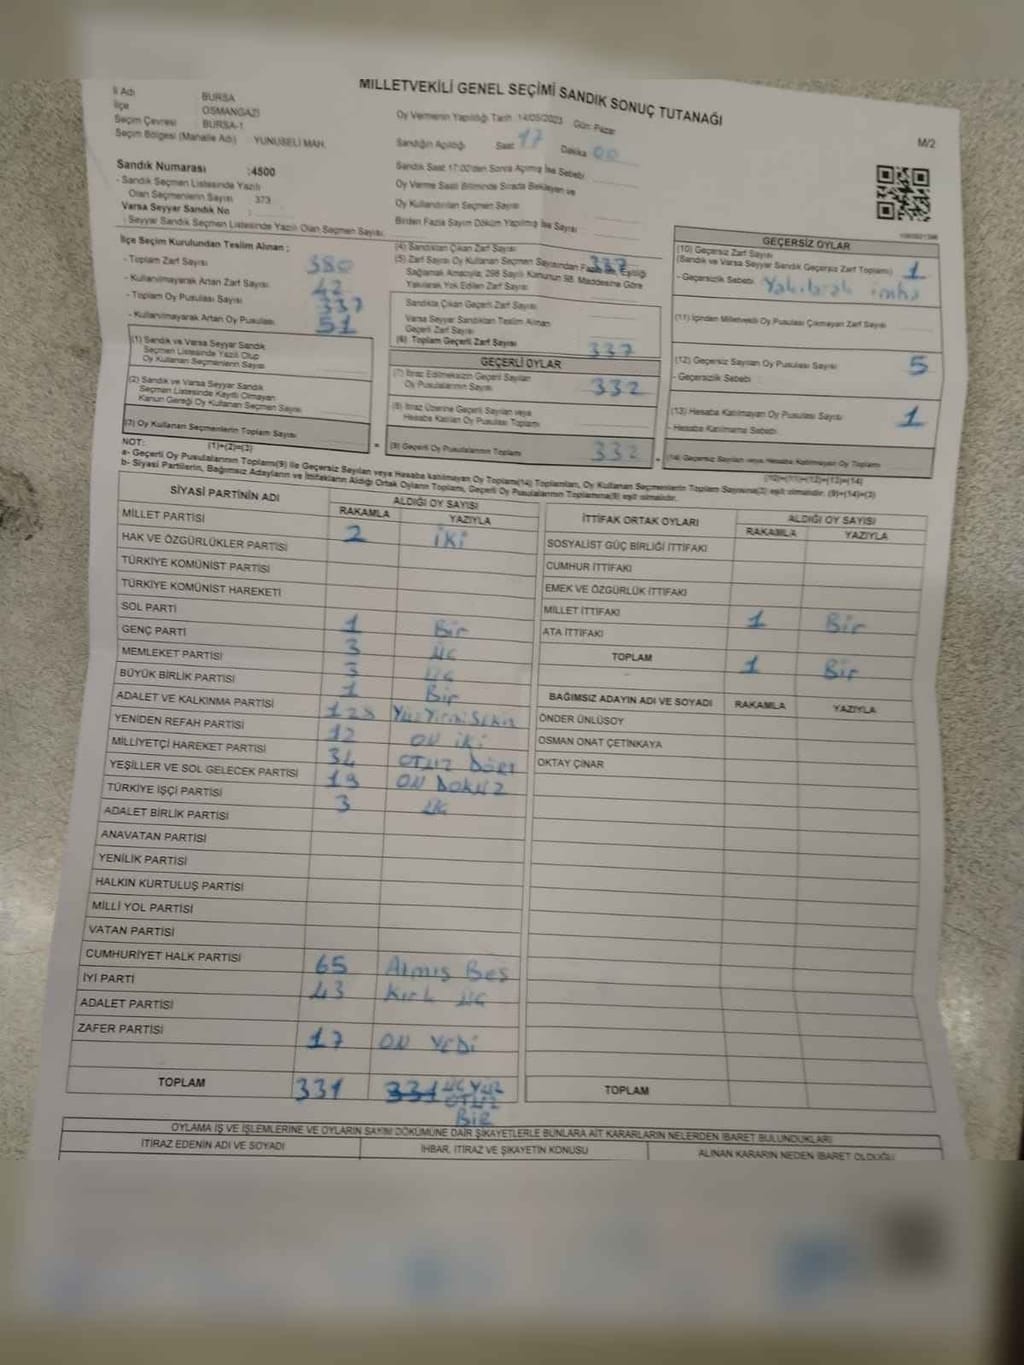 MİLLETVEKİLİ GENEL SEÇİMİ SANDIK SONUÇ TUTANAĞI
M/2
İl Adı BURSA
İlçe OSMANGAZİ
Seçim Çevresi BURSA-1
Seçim Bölgesi (Mahalle Adı) YUNUSELİ MAH.
Oy Vermenin Yapıldığı Tarih 14/05/2023 Gün: Pazar
Sandığın Açıldığı Saat 17 Dakika 00
Sandık Saat 17:00'den Sonra Açılmış İse Sebebi
Oy Verme Saati Bitiminde Sırada Bekleyen ve
Oy Kullandırılan Seçmen Sayısı
Birden Fazla Sayım Döküm Yapılmış İse Sayısı
Sandık Numarası :4500
- Sandık Seçmen Listesinde Yazılı
Olan Seçmenlerin Sayısı 373
Varsa Seyyar Sandık No
- Seyyar Sandık Seçmen Listesinde Yazılı Olan Seçmen Sayısı:
İlçe Seçim Kurulundan Teslim Alınan :
- Toplam Zarf Sayısı 380
- Kullanılmayarak Artan Zarf Sayısı 42
- Toplam Oy Pusulası Sayısı 337
- Kullanılmayarak Artan Oy Pusulası 51
(1) Sandık ve Varsa Seyyar Sandık
Seçmen Listesinde Yazılı Olup
Oy Kullanan Seçmenlerin Sayısı
(2) Sandık ve Varsa Seyyar Sandık
Seçmen Listesinde Kayıtlı Olmayan
Kanun Gereği Oy Kullanan Seçmen Sayısı
(3) Oy Kullanan Seçmenlerin Toplam Sayısı
(1)+(2)=(3)
(4) Sandıktan Çıkan Zarf Sayısı 337
(5) Zarf Sayısı Oy Kullanan Seçmen Sayısından Fazla ise, Eşitliği
Sağlamak Amacıyla; 298 Sayılı Kanunun 98. Maddesine Göre
Yakılarak Yok Edilen Zarf Sayısı
Sandıkta Çıkan Geçerli Zarf Sayısı
Varsa Seyyar Sandıktan Teslim Alınan
Geçerli Zarf Sayısı
(6) Toplam Geçerli Zarf Sayısı 337
GEÇERLİ OYLAR
(7) İtiraz Edilmeksizin Geçerli Sayılan
Oy Pusulalarının Sayısı 332
(8) İtiraz Üzerine Geçerli Sayılan veya
Hesaba Katılan Oy Pusulası Toplamı
(9) Geçerli Oy Pusulalarının Toplamı 332
GEÇERSİZ OYLAR
(10) Geçersiz Zarf Sayısı
(Sandık ve Varsa Seyyar Sandık Geçersiz Zarf Toplamı) 1
- Geçersizlik Sebebi Yakılarak imha
(11) İçinden Milletvekili Oy Pusulası Çıkmayan Zarf Sayısı
(12) Geçersiz Sayılan Oy Pusulası Sayısı 5
- Geçersizlik Sebebi
(13) Hesaba Katılmayan Oy Pusulası Sayısı 1
- Hesaba Katılmama Sebebi
(14) Geçersiz Sayılan veya Hesaba Katılmayan Oy Toplamı
(10)+(11)+(12)+(13)=(14)
NOT:
a- Geçerli Oy Pusulalarının Toplamı(9) ile Geçersiz Sayılan veya Hesaba katılmayan Oy Toplamı(14) Toplamları, Oy Kullanan Seçmenlerin Toplam Sayısına(3) eşit olmalıdır. (9)+(14)=(3)
b- Siyasi Partilerin, Bağımsız Adayların ve İttifakların Aldığı Ortak Oyların Toplamı, Geçerli Oy Pusulalarının Toplamına(9) eşit olmalıdır.
SİYASİ PARTİNİN ADI ALDIĞI OY SAYISI
RAKAMLA YAZIYLA
MİLLET PARTİSİ 2 iki
HAK VE ÖZGÜRLÜKLER PARTİSİ
TÜRKİYE KOMÜNİST PARTİSİ
TÜRKİYE KOMÜNİST HAREKETİ
SOL PARTİ
GENÇ PARTİ 1 Bir
MEMLEKET PARTİSİ 3 üç
BÜYÜK BİRLİK PARTİSİ 3 üç
ADALET VE KALKINMA PARTİSİ 1 Bir
YENİDEN REFAH PARTİSİ 128 Yüz Yirmi Sekiz
MİLLİYETÇİ HAREKET PARTİSİ 12 ON iki
YEŞİLLER VE SOL GELECEK PARTİSİ 34 OTUZ Dört
TÜRKİYE İŞÇİ PARTİSİ 19 ON DOKUZ
ADALET BİRLİK PARTİSİ 3 üç
ANAVATAN PARTİSİ
YENİLİK PARTİSİ
HALKIN KURTULUŞ PARTİSİ
MİLLİ YOL PARTİSİ
VATAN PARTİSİ
CUMHURİYET HALK PARTİSİ 65 Atmış Beş
İYİ PARTİ 43 Kırk üç
ADALET PARTİSİ
ZAFER PARTİSİ 17 ON YEDİ
TOPLAM 331 331 üç YÜZ
OTUZ
Bir
İTTİFAK ORTAK OYLARI ALDIĞI OY SAYISI
RAKAMLA YAZIYLA
SOSYALİST GÜÇ BİRLİĞİ İTTİFAKI
CUMHUR İTTİFAKI
EMEK VE ÖZGÜRLÜK İTTİFAKI
MİLLET İTTİFAKI 1 Bir
ATA İTTİFAKI
TOPLAM 1 Bir
BAĞIMSIZ ADAYIN ADI VE SOYADI RAKAMLA YAZIYLA
ÖNDER ÜNLÜSOY
OSMAN ONAT ÇETİNKAYA
OKTAY ÇINAR
TOPLAM
OYLAMA İŞ VE İŞLEMLERİNE VE OYLARIN SAYIM DÖKÜMÜNE DAİR ŞİKAYETLERLE BUNLARA AİT KARARLARIN NELERDEN İBARET BULUNDUKLARI
İTİRAZ EDENİN ADI VE SOYADI İHBAR, İTİRAZ VE ŞİKAYETİN KONUSU ALINAN KARARIN NEDEN İBARET OLDUĞU